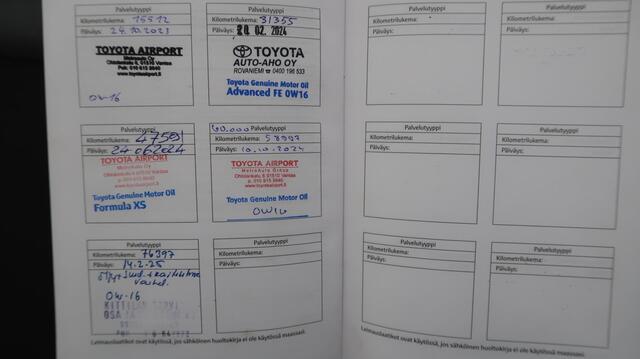 Palvelutyyppi
Kilometrilukema: 15512
Päiväys: 24.10.2023
TOYOTA AIRPORT
Metroauto Oy
Ohtolankatu 4, 01510 Vantaa
Puh. 010 615 8640
www.toyotaairport.fi
0W-16
Palvelutyyppi
Kilometrilukema: 31355
Päiväys: 20. 02. 2024
TOYOTA
AUTO-AHO OY
ROVANIEMI ☎ 0400 196 533
Toyota Genuine Motor Oil
Advanced FE 0W16
Palvelutyyppi
Kilometrilukema:
Päiväys: 24.06.2024
TOYOTA AIRPORT
Metroauto Oy
Ohtolankatu 4 01510 Vantaa
p. 010 615 8640
www.toyotaairport.fi
Toyota Genuine Motor Oil
Formula XS
60.000 Palvelutyyppi
Kilometrilukema: 58997
Päiväys: 10.10.2024
TOYOTA AIRPORT
Metroauto Group
Ohtolankatu 4, 01510 Vantaa
p. 010 615 8640
www.toyotaairport.fi
Toyota Genuine Motor Oil
0W16
Palvelutyyppi
Kilometrilukema: 76397
Päiväys: 14.2-25
0W-16
Palvelutyyppi
Kilometrilukema:
Päiväys:
Palvelutyyppi
Kilometrilukema:
Päiväys:
Palvelutyyppi
Kilometrilukema:
Päiväys:
Palvelutyyppi
Kilometrilukema:
Päiväys:
Palvelutyyppi
Kilometrilukema:
Päiväys:
Palvelutyyppi
Kilometrilukema:
Päiväys:
Leimauslaatikot ovat käytössä, jos sähköinen huoltokirja ei ole käytössä maassasi.
Leimauslaatikot ovat käytössä, jos sähköinen huoltokirja ei ole käytössä maassasi.